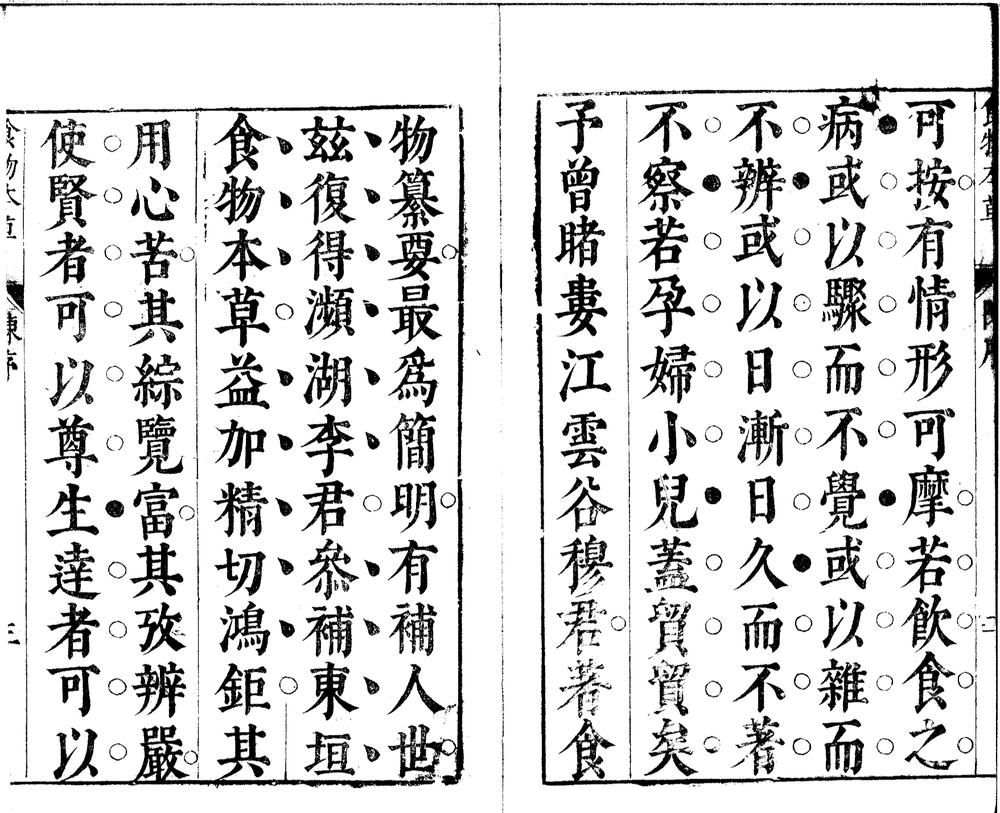 可按有情形可摩若飲食之
病或以驟而不覺或以雜而
不辨或以日漸日久而不著
不察若孕婦小兒蓋貿貿矣
予曾睹婁江雲谷穆君著食
物纂要最爲簡明有補人世
茲復得瀕湖李君叅補東垣
食物本草益加精切鴻鉅其
用心苦其綜覽富其攷辨嚴
使賢者可以尊生達者可以
食物本草
陳序
三